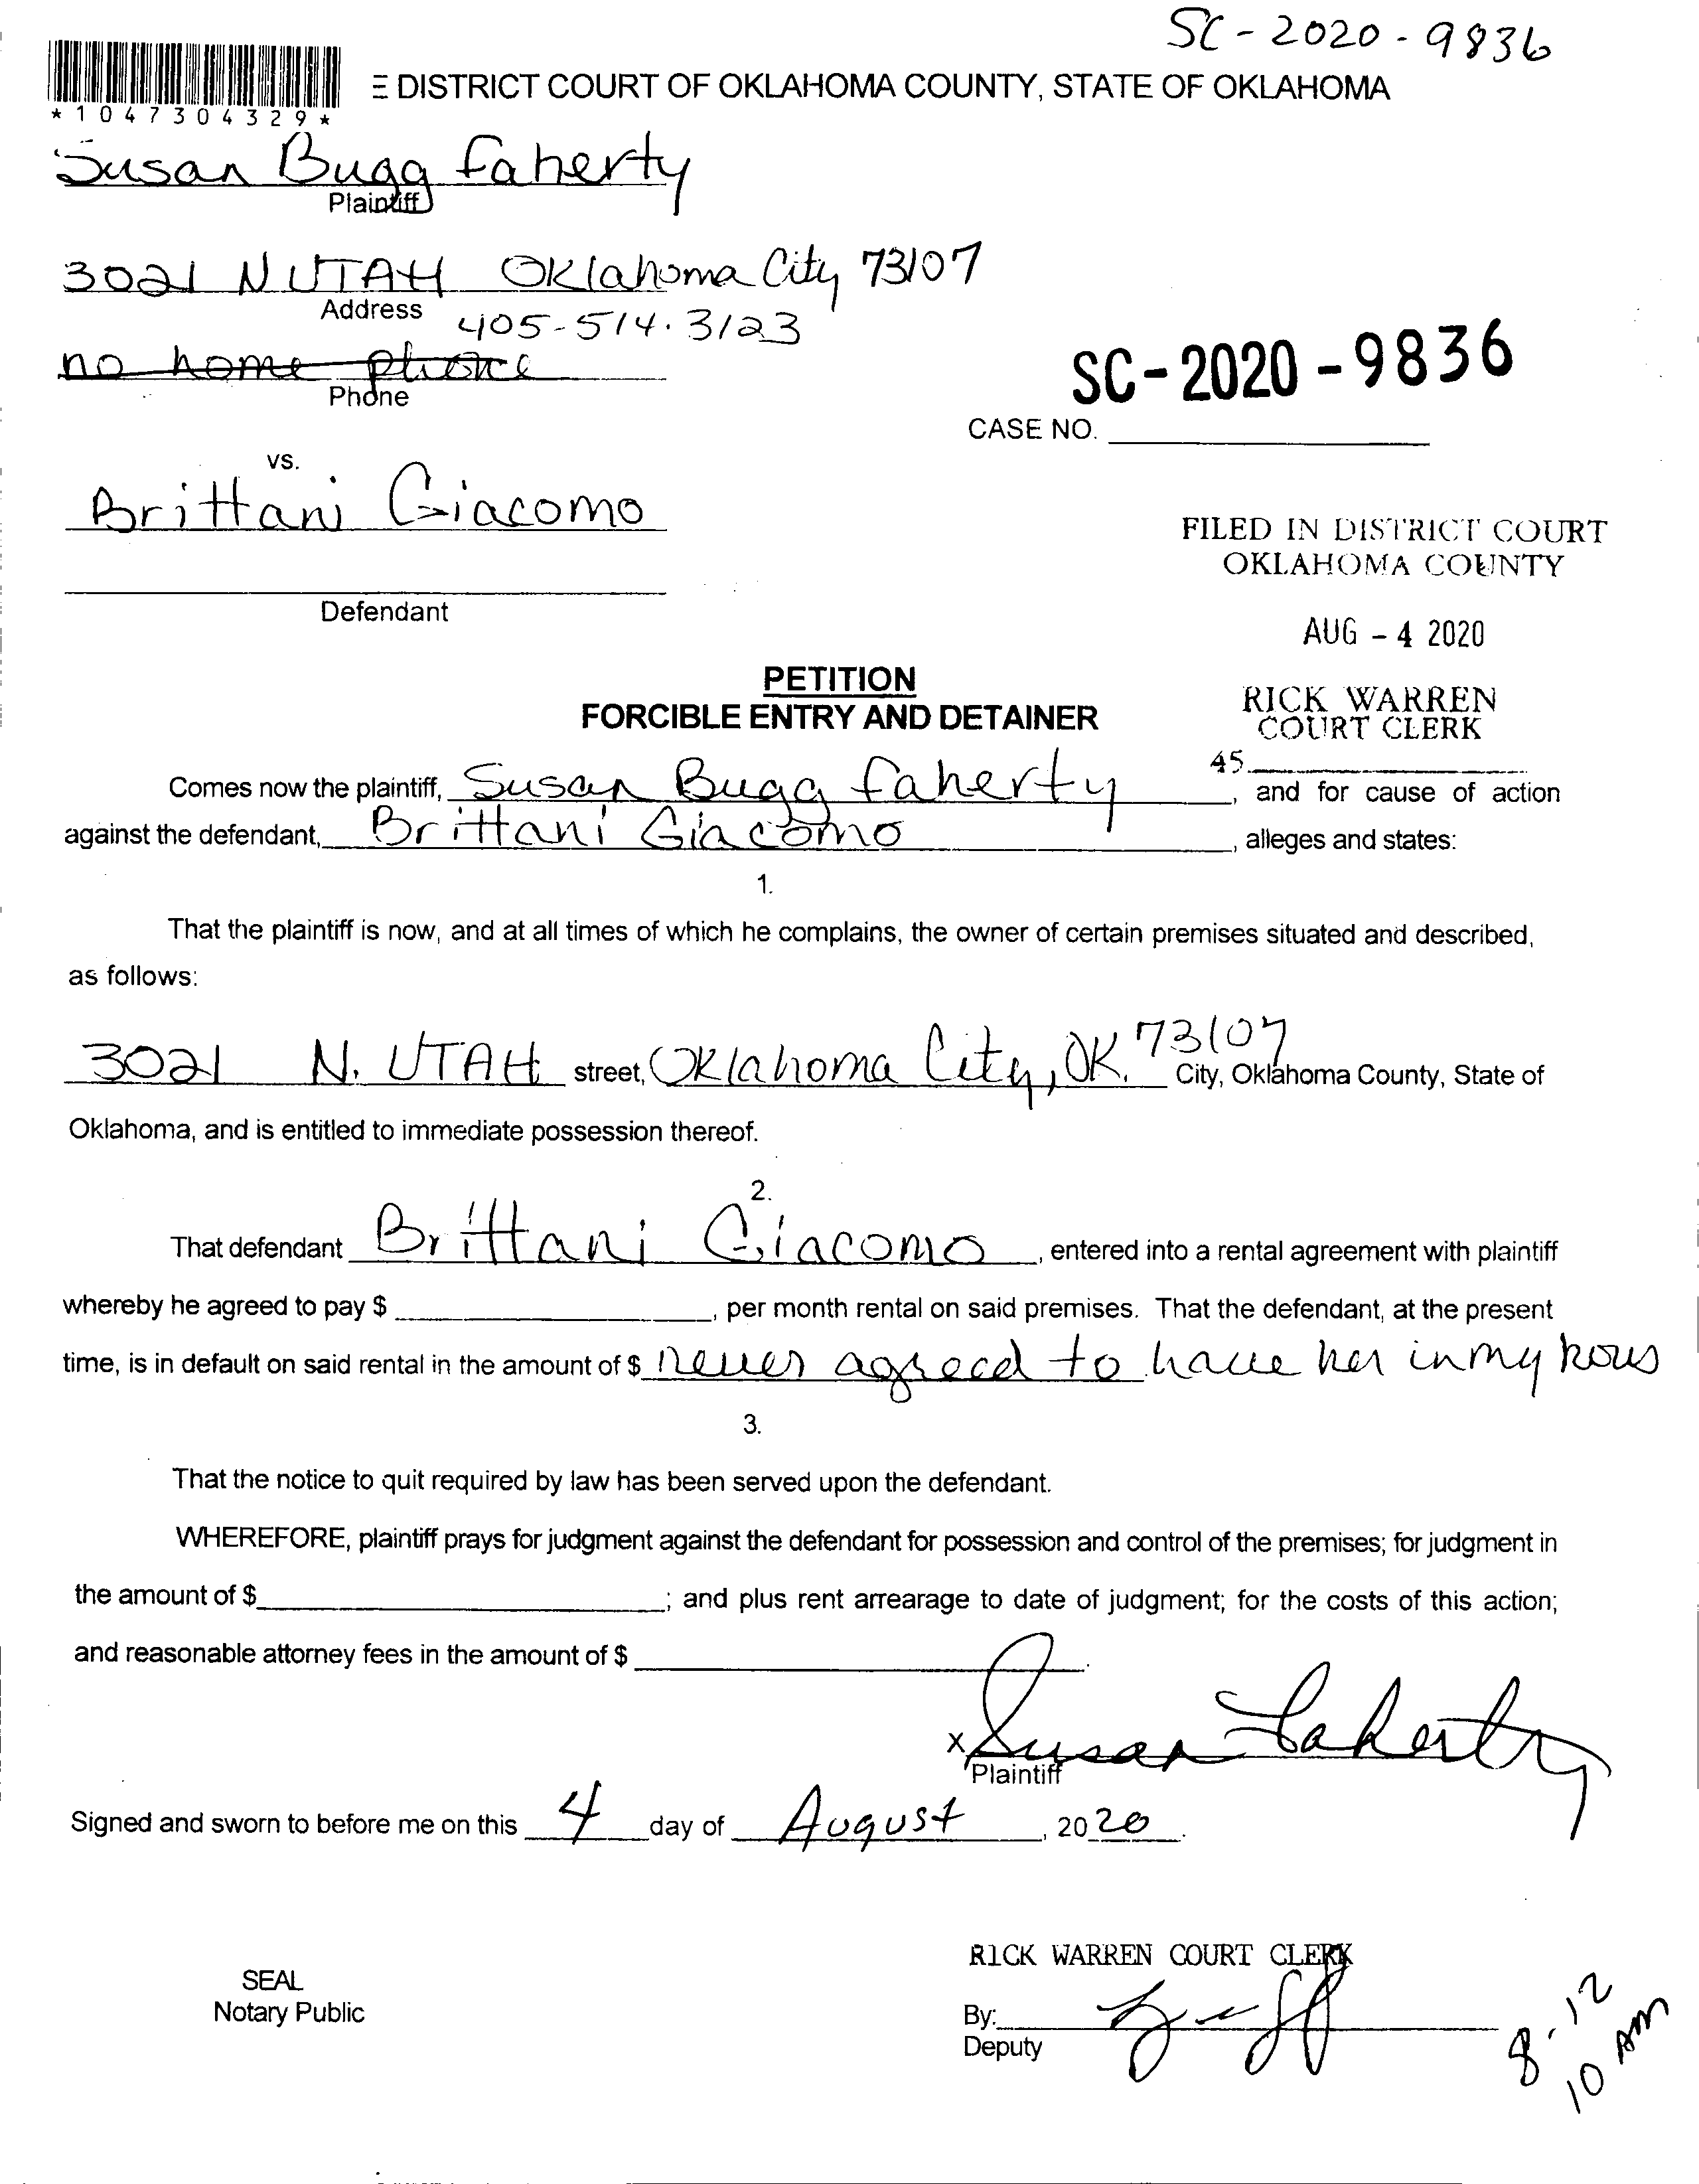 SC-2020-9836
E DISTRICT COURT OF OKLAHOMA COUNTY, STATE OF OKLAHOMA
*1047304329*
Susan Bugg Faherty
Plaintiff
3021 N UTAH Oklahoma City 73107
Address
405-514-3123
no home phone
Phone
SC-2020-9836
CASE NO.
vs.
Brittani Giacomo
FILED IN DISTRICT COURT
OKLAHOMA COUNTY
Defendant
AUG - 4 2020
PETITION
FORCIBLE ENTRY AND DETAINER
RICK WARREN
COURT CLERK
45
Comes now the plaintiff, Susan Bugg Faherty, and for cause of action
against the defendant, Brittani Giacomo, alleges and states:
1.
That the plaintiff is now, and at all times of which he complains, the owner of certain premises situated and described,
as follows:
3021 N. UTAH street, Oklahoma City, OK. 73107 City, Oklahoma County, State of
Oklahoma, and is entitled to immediate possession thereof.
2.
That defendant Brittani Giacomo, entered into a rental agreement with plaintiff
whereby he agreed to pay $ , per month rental on said premises. That the defendant, at the present
time, is in default on said rental in the amount of $ never agreed to have her in my hous
3.
That the notice to quit required by law has been served upon the defendant.
WHEREFORE, plaintiff prays for judgment against the defendant for possession and control of the premises; for judgment in
the amount of $ ; and plus rent arrearage to date of judgment; for the costs of this action;
and reasonable attorney fees in the amount of $ .
X Susan Faherty
Plaintiff
Signed and sworn to before me on this 4 day of August, 2020.
RICK WARREN COURT CLERK
SEAL
Notary Public
By:
Deputy
8-12
10 AM